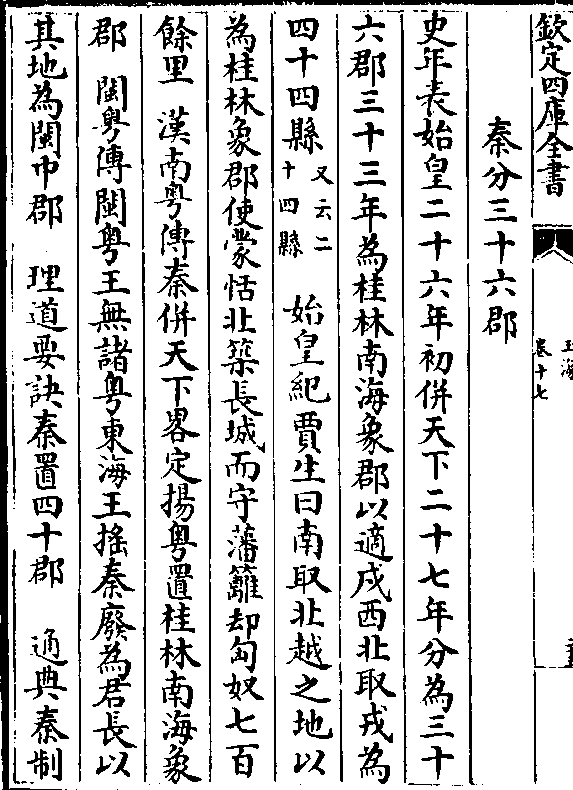 欽定四庫全書
玉海
卷十七
秦分三十六郡
史年表始皇二十六年初併天下二十七年分為三十
六郡三十三年為桂林南海象郡以適戍西北取戎為
四十四縣又云二十四縣 始皇紀賈生曰南取北越之地以
為桂林象郡使蒙恬北築長城而守藩籬却匈奴七百
餘里 漢南粤傳秦併天下畧定揚粤置桂林南海象
郡 閩粤傳閩粤王無諸粤東海王摇秦廢為君長以
其地為閩中郡 理道要訣秦置四十郡 通典秦制